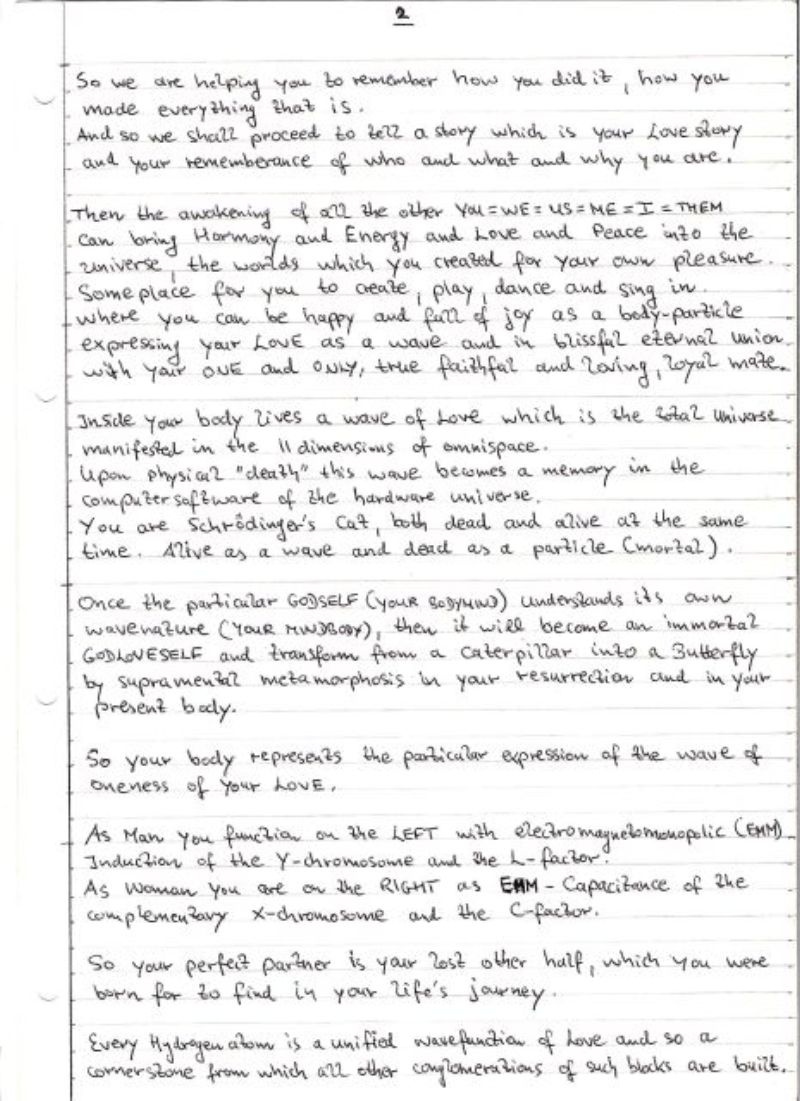 2
So we are helping you to remember how you did it, how you
made everything that is.
And so we shall proceed to tell a story which is your Love story
and your rememberance of who and what and why you are.
Then the awakening of all the other YOU=WE=US=ME=I=THEM
can bring Harmony and Energy and Love and Peace into the
universe, the worlds which you created for your own pleasure.
Someplace for you to create, play, dance and sing in.
where you can be happy and full of joy as a body-particle
expressing your LOVE as a wave and in blissful eternal union
with your ONE and ONLY, true faithful and loving, loyal mate.
Inside your body lives a wave of Love which is the total universe
manifested in the 11 dimensions of omnispace.
Upon physical "death" this wave becomes a memory in the
computersoftware of the hardware universe.
You are Schrödinger's Cat, both dead and alive at the same
time. Alive as a wave and dead as a particle (mortal).
Once the particular GODSELF (YOUR BODYMIND) understands its own
wavenature (YOUR MINDBODY), then it will become an immortal
GODLOVESELF and transform from a caterpillar into a Butterfly
by supramental metamorphosis in your resurrection and in your
present body.
So your body represents the particular expression of the wave of
oneness of your LOVE.
As Man you function on the LEFT with electromagnetomonopolic (EMM)
Induction of the Y-chromosome and the L-factor.
As Woman you are on the RIGHT as EMM-Capacitance of the
complementary X-chromosome and the C-factor.
So your perfect partner is your lost other half, which you were
born for to find in your life's journey.
Every Hydrogen atom is a unified wavefunction of Love and so a
cornerstone from which all other conglomerations of such blocks are built.